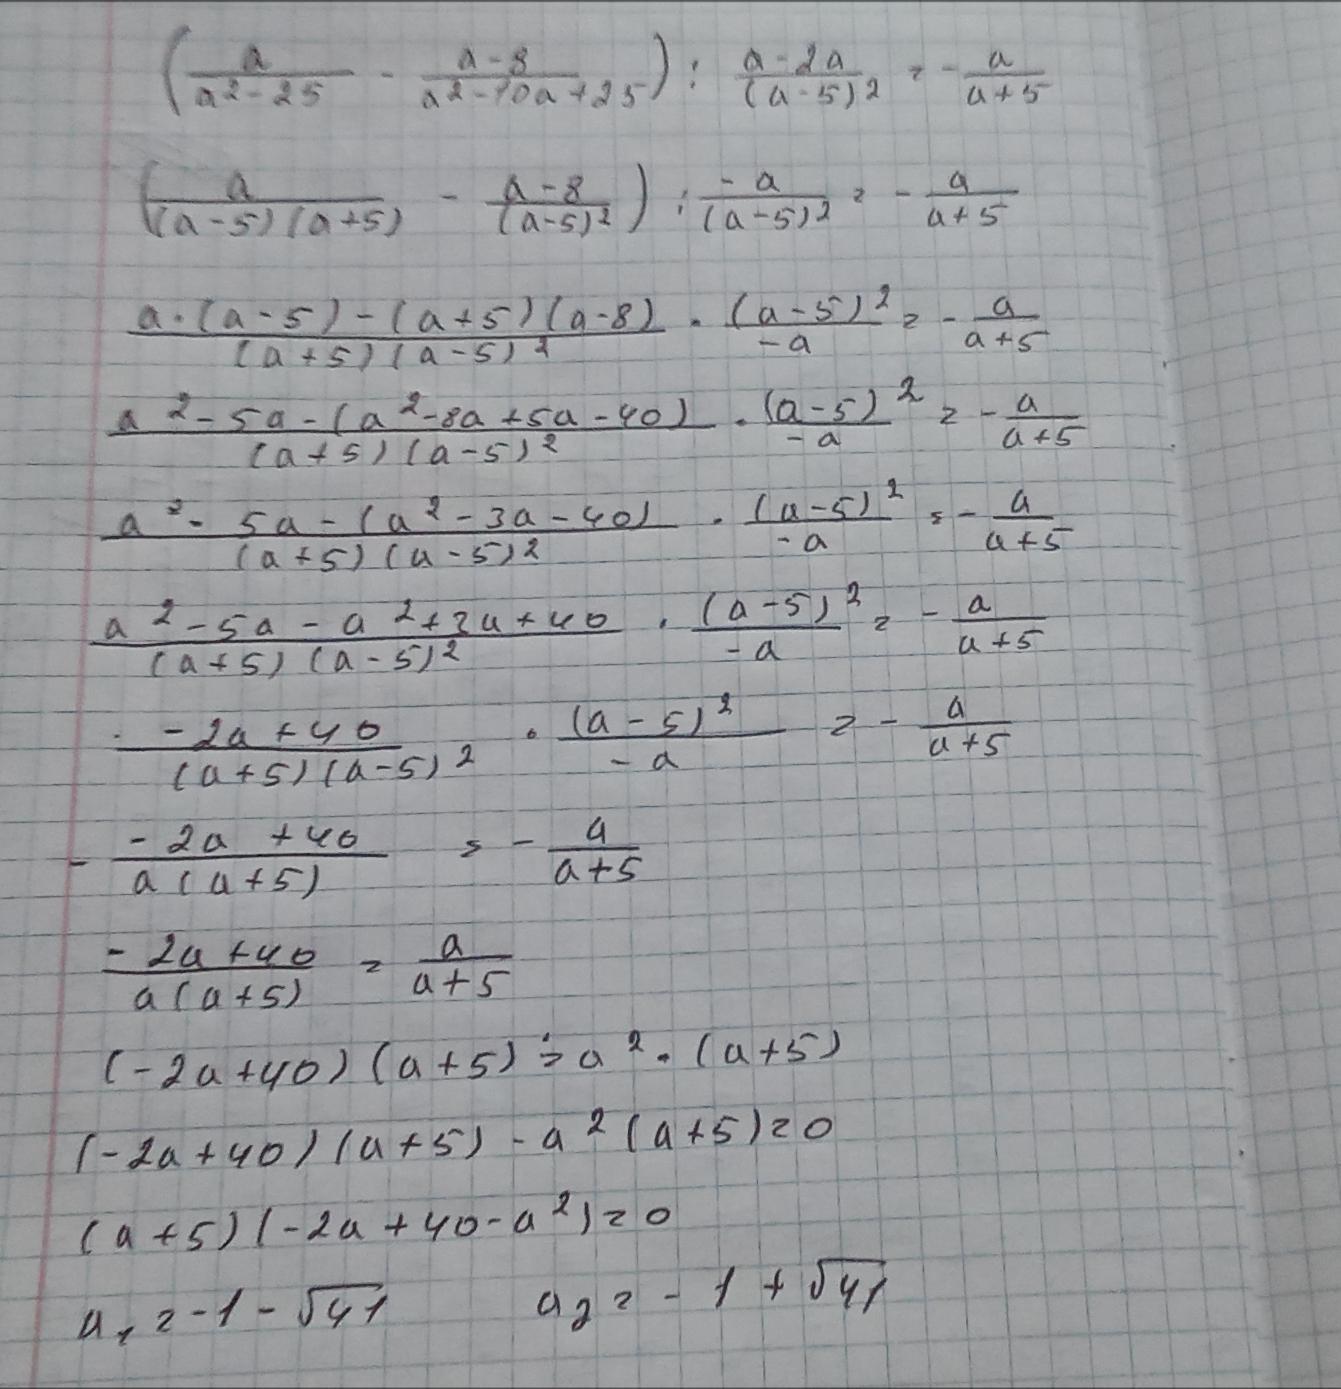 (a/(a² - 25) - (a - 8)/(a² - 10a + 25)) : (a - 2a)/(a - 5)² = - a/(a + 5)
(a/((a - 5)(a + 5)) - (a - 8)/(a - 5)²) : (-a)/(a - 5)² = - a/(a + 5)
(a · (a - 5) - (a + 5)(a - 8))/((a + 5)(a - 5)²) · (a - 5)²/(-a) = - a/(a + 5)
(a² - 5a - (a² - 8a + 5a - 40))/((a + 5)(a - 5)²) · (a - 5)²/(-a) = - a/(a + 5)
(a² - 5a - (a² - 3a - 40))/((a + 5)(a - 5)²) · (a - 5)²/(-a) = - a/(a + 5)
(a² - 5a - a² + 3a + 40)/((a + 5)(a - 5)²) · (a - 5)²/(-a) = - a/(a + 5)
(-2a + 40)/((a + 5)(a - 5)²) · (a - 5)²/(-a) = - a/(a + 5)
- (-2a + 40)/(a(a + 5)) = - a/(a + 5)
(-2a + 40)/(a(a + 5)) = a/(a + 5)
(-2a + 40)(a + 5) = a² · (a + 5)
(-2a + 40)(a + 5) - a²(a + 5) = 0
(a + 5)(-2a + 40 - a²) = 0
a₁ = -1 - √41 a₂ = -1 + √41